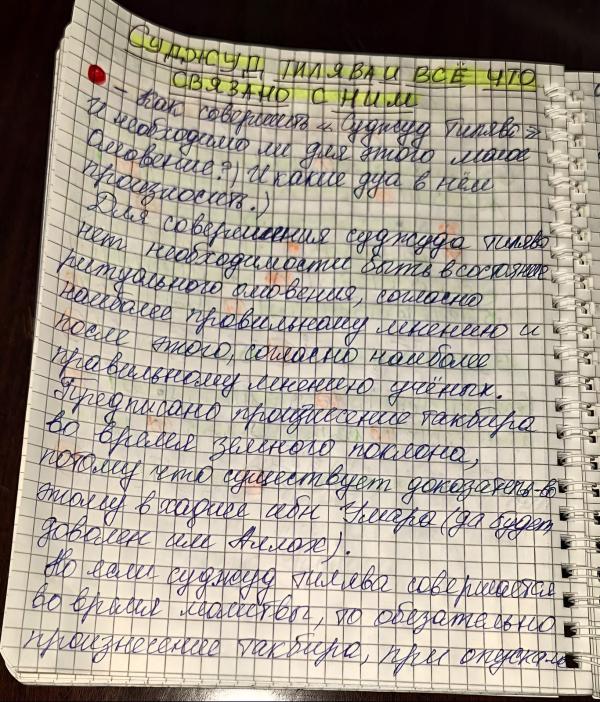 СУДЖУД ТИЛЯВА И ВСЁ ЧТО
СВЯЗАНО С НИМ
- Как совершить «Суджуд тилява»
и необходимо ли для этого малое
омовение?) И какие дуа в нём
произносить.)
Для совершения суджуда тилява
нет необходимости быть в состояние
ритуального омовения, согласно
наиболее правильному мнению и
после этого, согласно наиболее
правильному мнению учёных.
Предписано произнесение такбира
во время земного поклона,
потому что существует доказательс-во
этому в хадисе ибн Умара (да будет
доволен им Аллах).
Но если суджуд тилява совершается
во время молитвы, то обезательно
произнесение такбира, при опускани